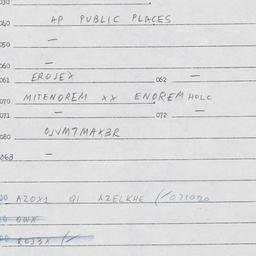 030
040 AP PUBLIC PLACES
050 —
060 —
061 EROJEX 062 —
070 MITENOREM XX ENOREM HOLC
071 — 072 —
080 OJVM7MAX3R
063 —
00 AZOX1 Q1 AZELKHE (/071020
00 OWX
00 ROJ3X (/